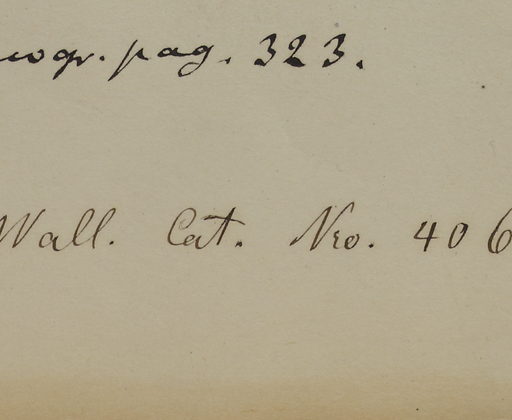 pag. 323.
Wall. Cat. Nro. 406